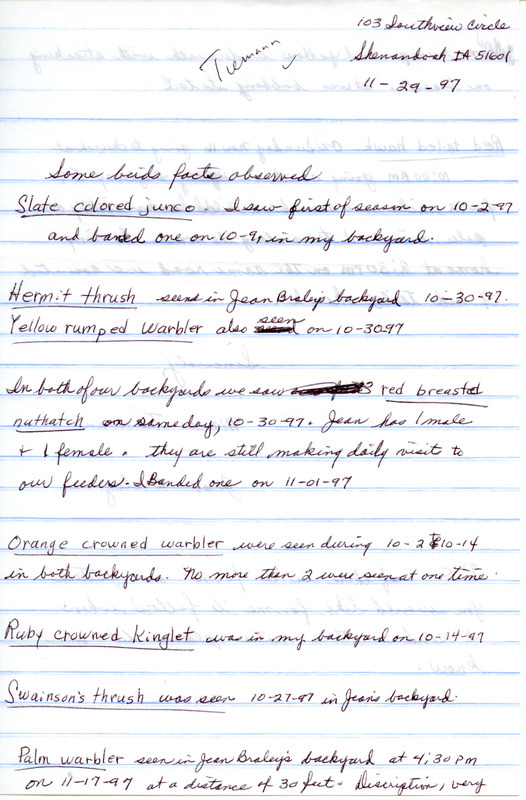 103 Southview Circle
Shenandoah IA 51601
Tiemann
11-29-97
Some birds facts observed
Slate colored junco. I saw first of season on 10-2-97
and banded one on 10-9, in my backyard.
Hermit thrush seens in Jean Braley's backyard 10-30-97.
Yellow rumped warbler also seen on 10-30-97
In both of our backyards we saw 3 red breasted
nuthatch on same day, 10-30-97. Jean has 1 male
+ 1 female. they are still making daily visit to
our feeders. I Banded one on 11-01-97
Orange crowned warbler were seen during 10-2 to 10-14
in both backyards. No more than 2 were seen at one time.
Ruby crowned Kinglet was in my backyard on 10-14-97
Swainson's thrush was seen 10-27-97 in Jean's backyard.
Palm warbler seen in Jean Braley's backyard at 4:30 pm
on 11-17-97 at a distance of 30 feet. Discription, very